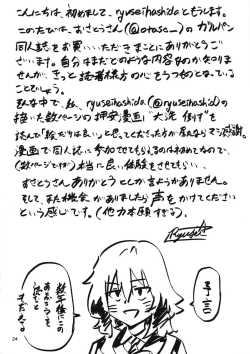 こんにちは、初めまして、ryuseihashidaともうします。
このたびは、おさとうさん(@otosa_)のガルパン
同人誌をお買いいただきまことにありがとうご
ざいます。自分はまだどのような内容なのか知りませ
んが、きっと読者様方の心をうつものとなっている
ことでしょう。
そんな中で、私、ryuseihashida(@ryuseihashida)の
描いた数ページの押安漫画"大洗 倒す"を
読んで「絵だけは良い」と思ってくださった方が居たならマジ感謝。
漫画で同人誌に参加させてもらえるのは初めてなので、
(数ページですが)本当に良い体験をさせてもらい、
おさとうさんありがとうとしか言ようがありません。
そして、また機会がありましたら声をかけてください
という感じです。(他力本願すぎる)
Ryusei
数年後にこの
あとがきを
読むと
24